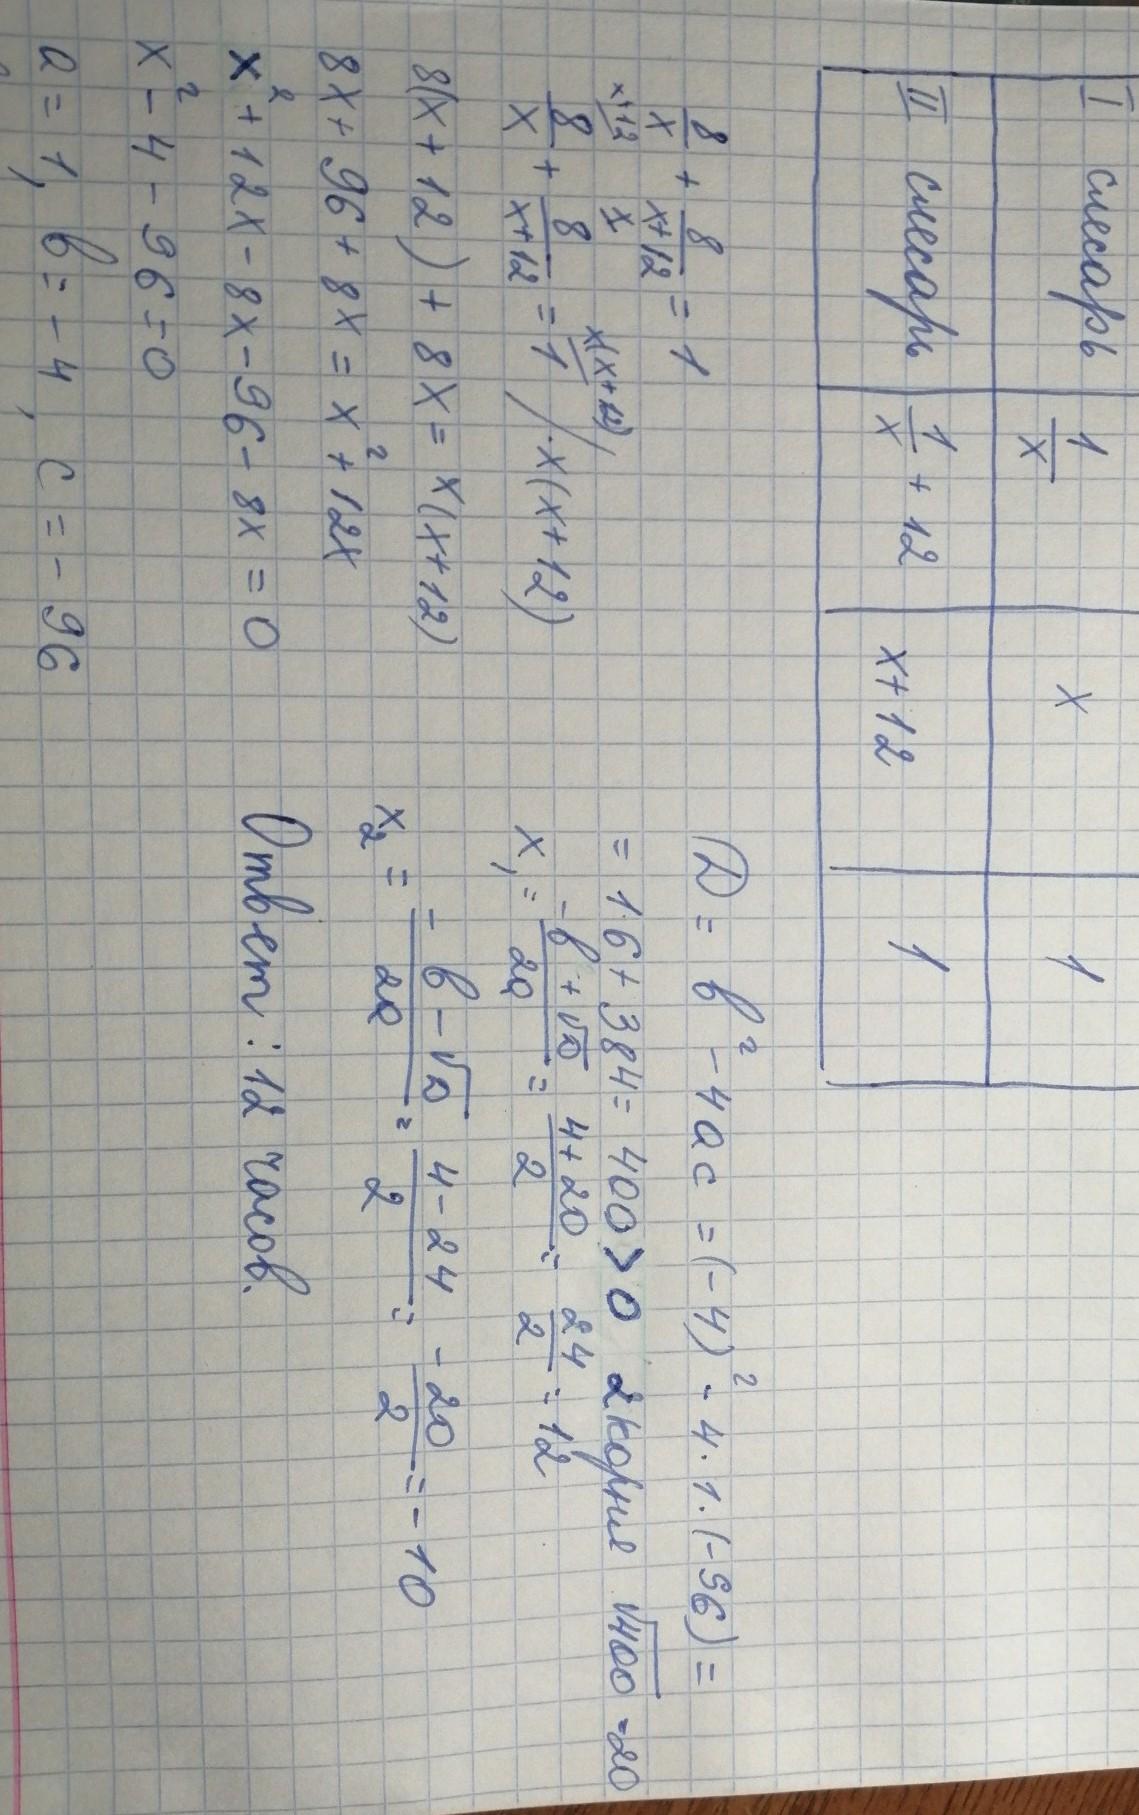 I слесарь 1/x x 1
II слесарь 1/x + 12 x+12 1
8/x + 8/x+12 = 1
x+12 x x(x+12)
8/x + 8/x+12 = 1 / · x(x+12)
8(x+12) + 8x = x(x+12)
8x + 96 + 8x = x² + 12x
x² + 12x - 8x - 96 - 8x = 0
x² - 4 - 96 = 0
a = 1, b = -4, c = -96
D = b² - 4ac = (-4)² - 4·1·(-96) =
= 16 + 384 = 400 > 0 2 корня √400 = 20
x₁ = -b+√D/2a = 4+20/2 = 24/2 = 12
x₂ = -b-√D/2a = 4-24/2 = -20/2 = -10
Ответ: 12 часов.